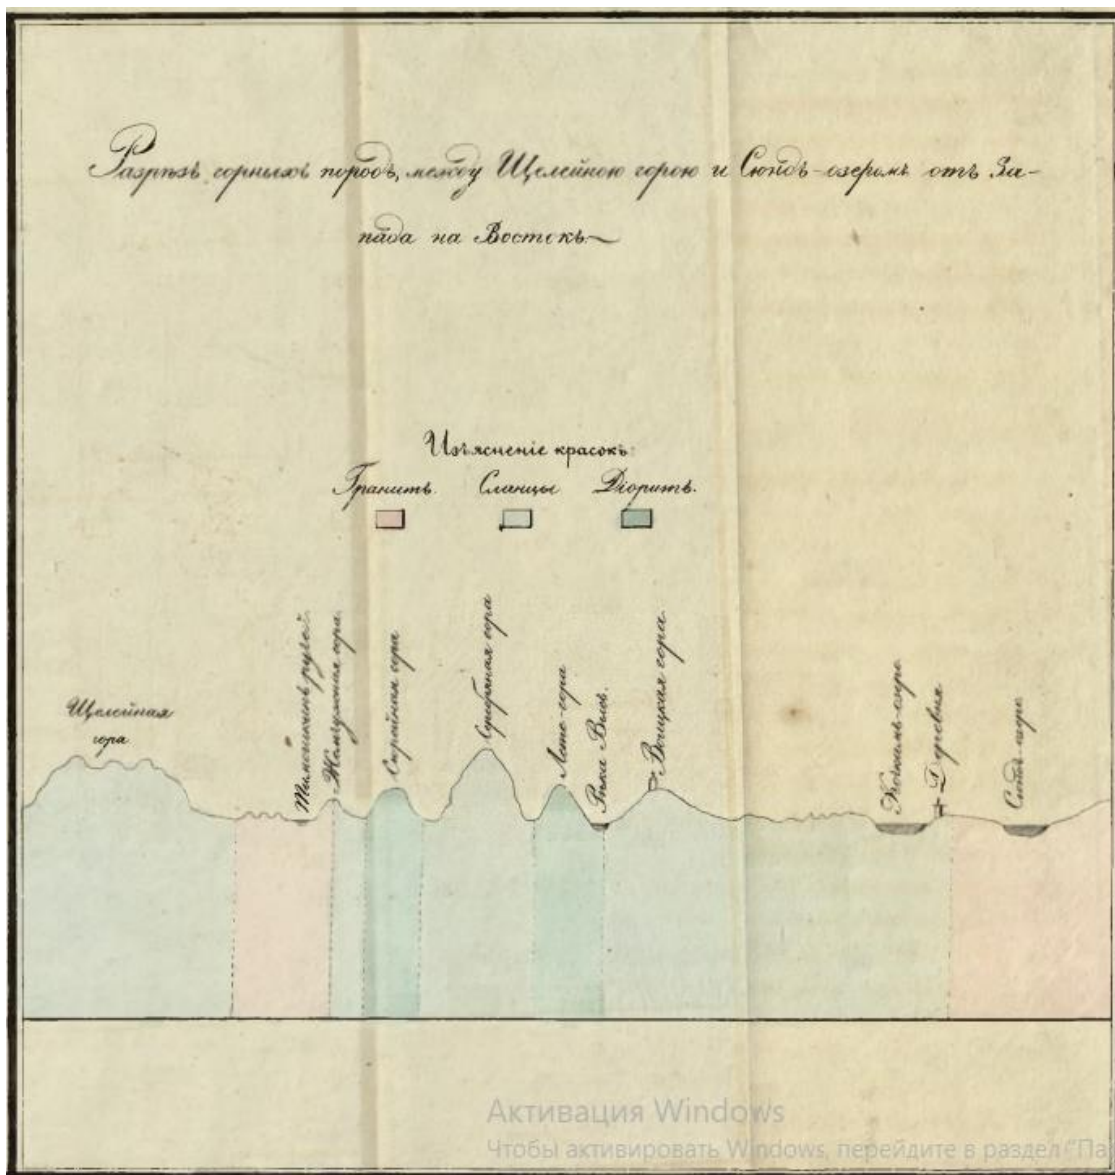 Разрѣзъ горныхъ породъ, между Щелейною горою и Сюндъ-озеромъ отъ За-
пада на Востокъ.
Изъясненіе красокъ:
Гранитъ. Сланцы Діоритъ.
Щелейная
гора
ручей.
Жемчужная гора.
гора
Серебряная гора
Лете-гора
Рѣка Выгъ.
Воицкая гора.
озеро
Деревня
озеро
Активация Windows
Чтобы активировать Windows, перейдите в раздел "Па